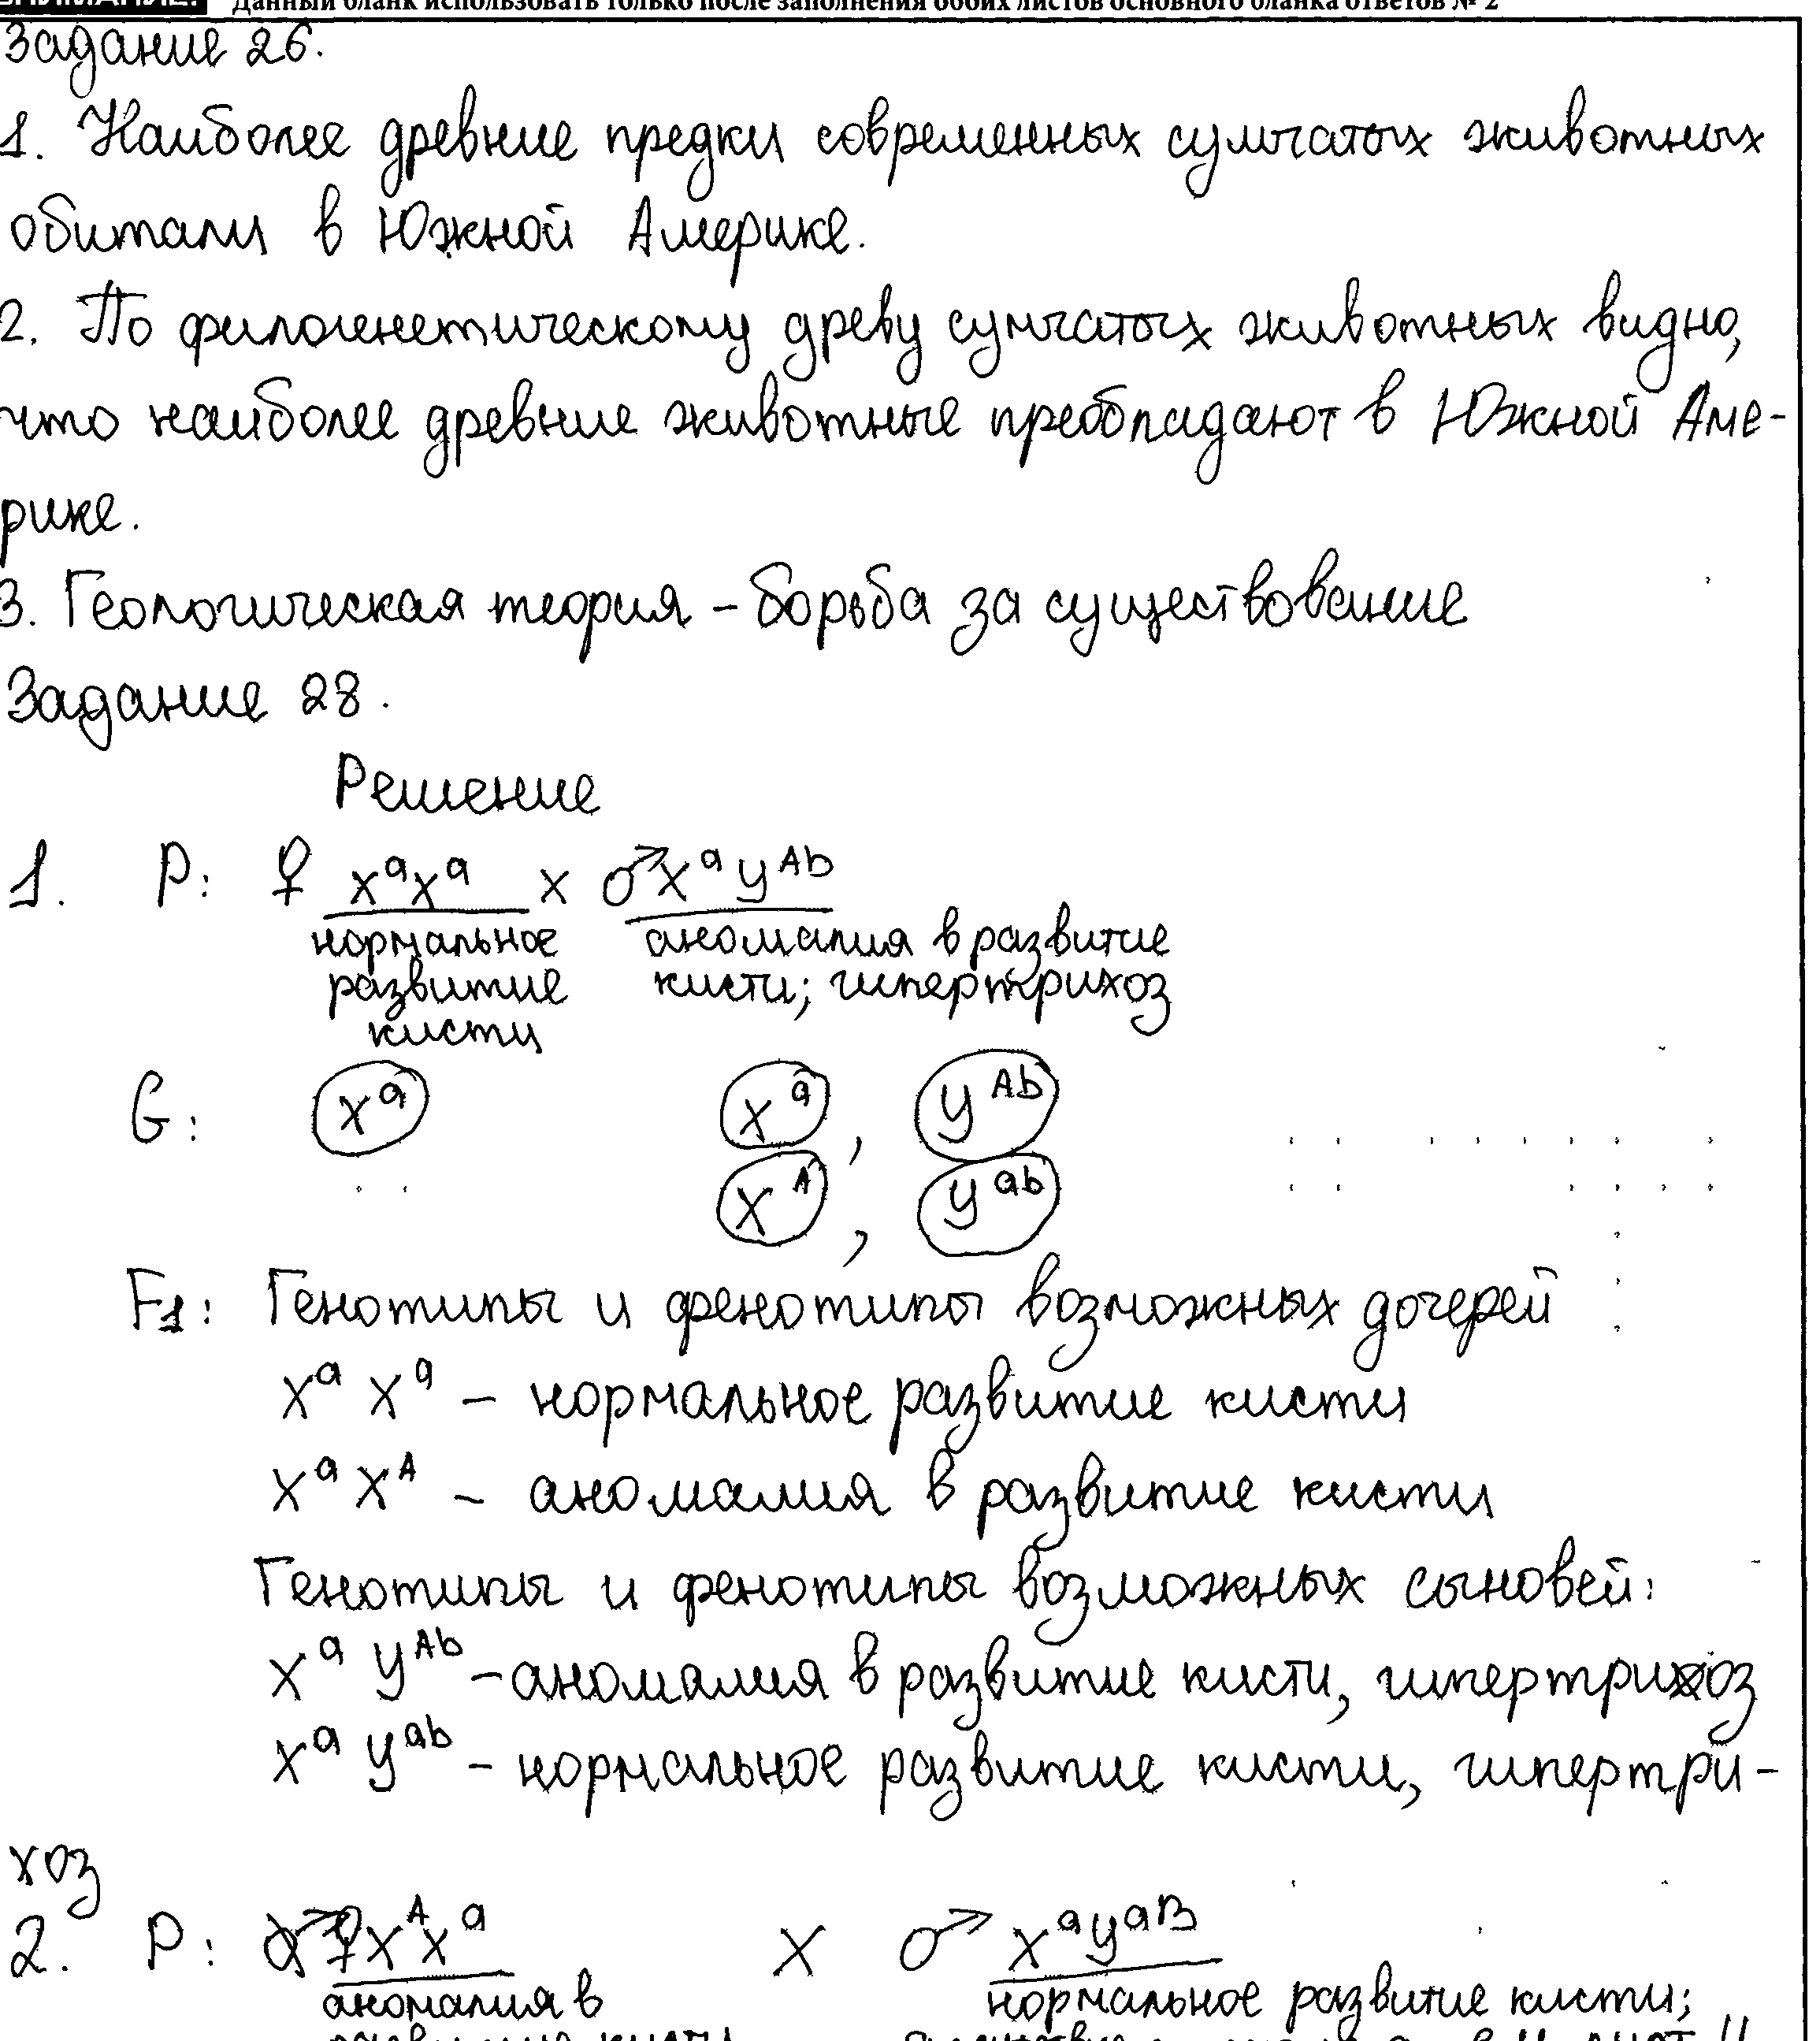 Данный бланк использовать только после заполнения обоих листов основного бланка ответов № 2
Задание 26.
1. Наиболее древние предки современных сумчатых животных
обитали в Южной Америке.
2. По филогенетическому древу сумчатых животных видно,
что наиболее древние животные преобладают в Южной Аме-
рике.
3. Геологическая теория – борьба за существование
Задание 28.
Решение
1. P: ♀ XᵃXᵃ x ♂XᵃYᴬᵇ
нормальное аномалия в развитие
развитие кисти; гипертрихоз
кисти
G: Xᵃ Xᵃ, Yᴬᵇ
Xᴬ, Yᵃᵇ
F1: Генотипы и фенотипы возможных дочерей
Xᵃ Xᵃ – нормальное развитие кисти
Xᵃ Xᴬ – аномалия в развитие кисти
Генотипы и фенотипы возможных сыновей:
Xᵃ Yᴬᵇ – аномалия в развитие кисти, гипертрихоз
Xᵃ Yᵃᵇ – нормальное развитие кисти, гипертри-
хоз
2. P: ♀XᴬXᵃ X ♂ XᵃYᵃᴮ
аномалия в нормальное развитие кисти;